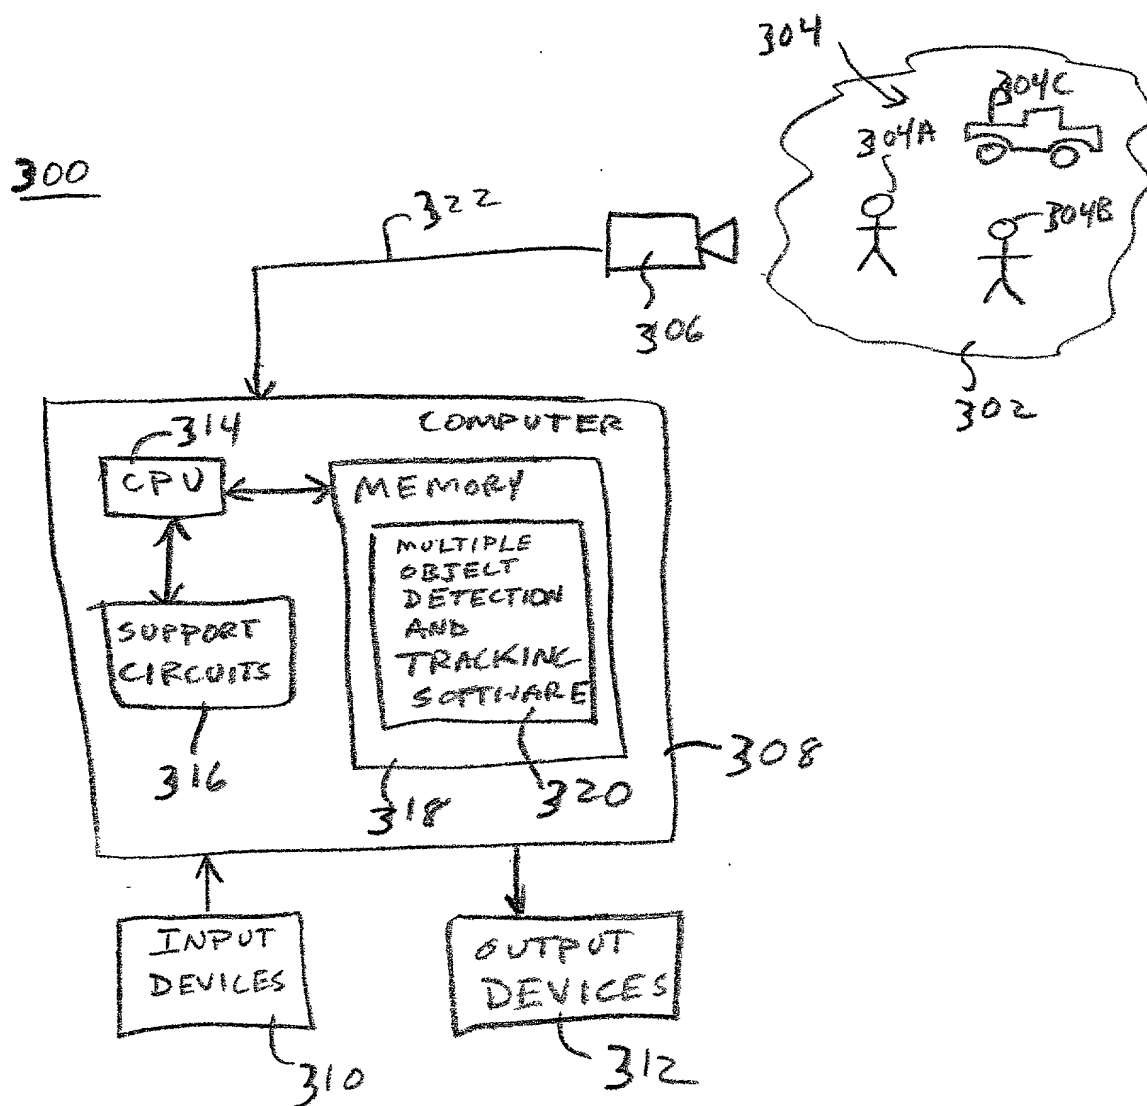 304
304C
304A
300
322
304B
306
302
COMPUTER
314
CPU
MEMORY
MULTIPLE
OBJECT
DETECTION
AND
TRACKING
SOFTWARE
SUPPORT
CIRCUITS
308
316
318
320
INPUT
DEVICES
OUTPUT
DEVICES
310
312